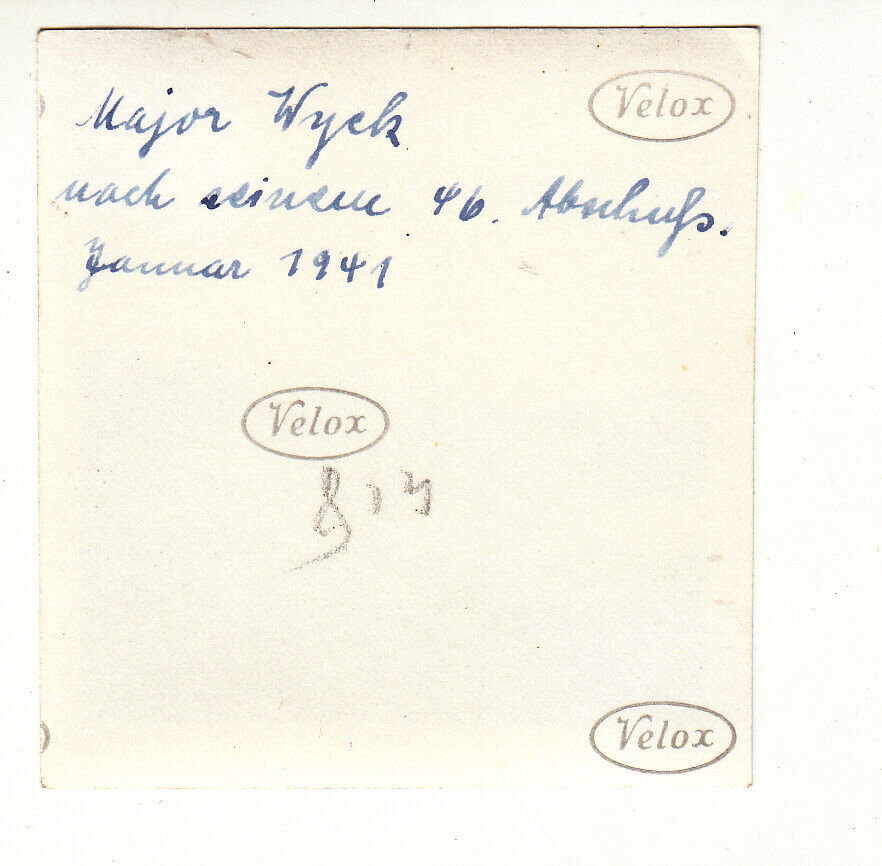 Major Wyck
Velox
nach seinem 46. Abschuß.
Januar 1941
Velox
Velox